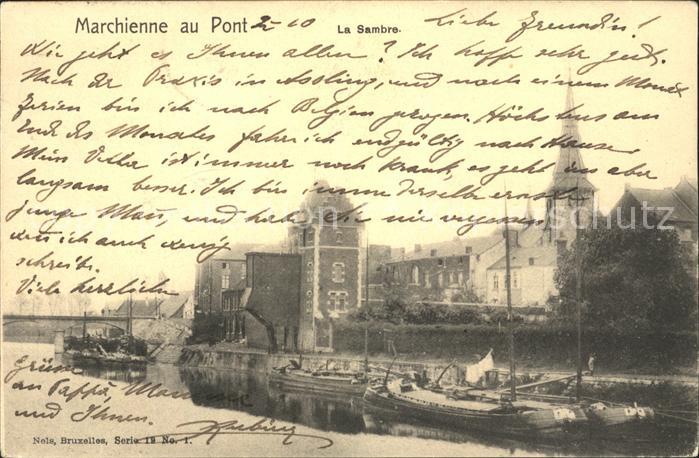 Marchienne au Pont 2 10 La Sambre.
Liebe Freundin!
Wie geht es Ihnen allen? Ich hoffe sehr gut.
Nach der Praxis in Assling, und nach einem Monat
Ferien bin ich nach Belgien gezogen. Höchstens am
Ende des Monates fahr ich endgültig nach Hause.
Mein Vater ist immer noch krank, es geht ihm aber
langsam besser. Ich bin immer derselbe ernste
junge Mann, und habe Sie nie vergessen
wenn ich auch wenig
schreib.
Viele herzlichen
Grüsse
an Pappa, Mamma
und Ihnen.
shutterstock
Nels, Bruxelles, Serie 19 No. 1.